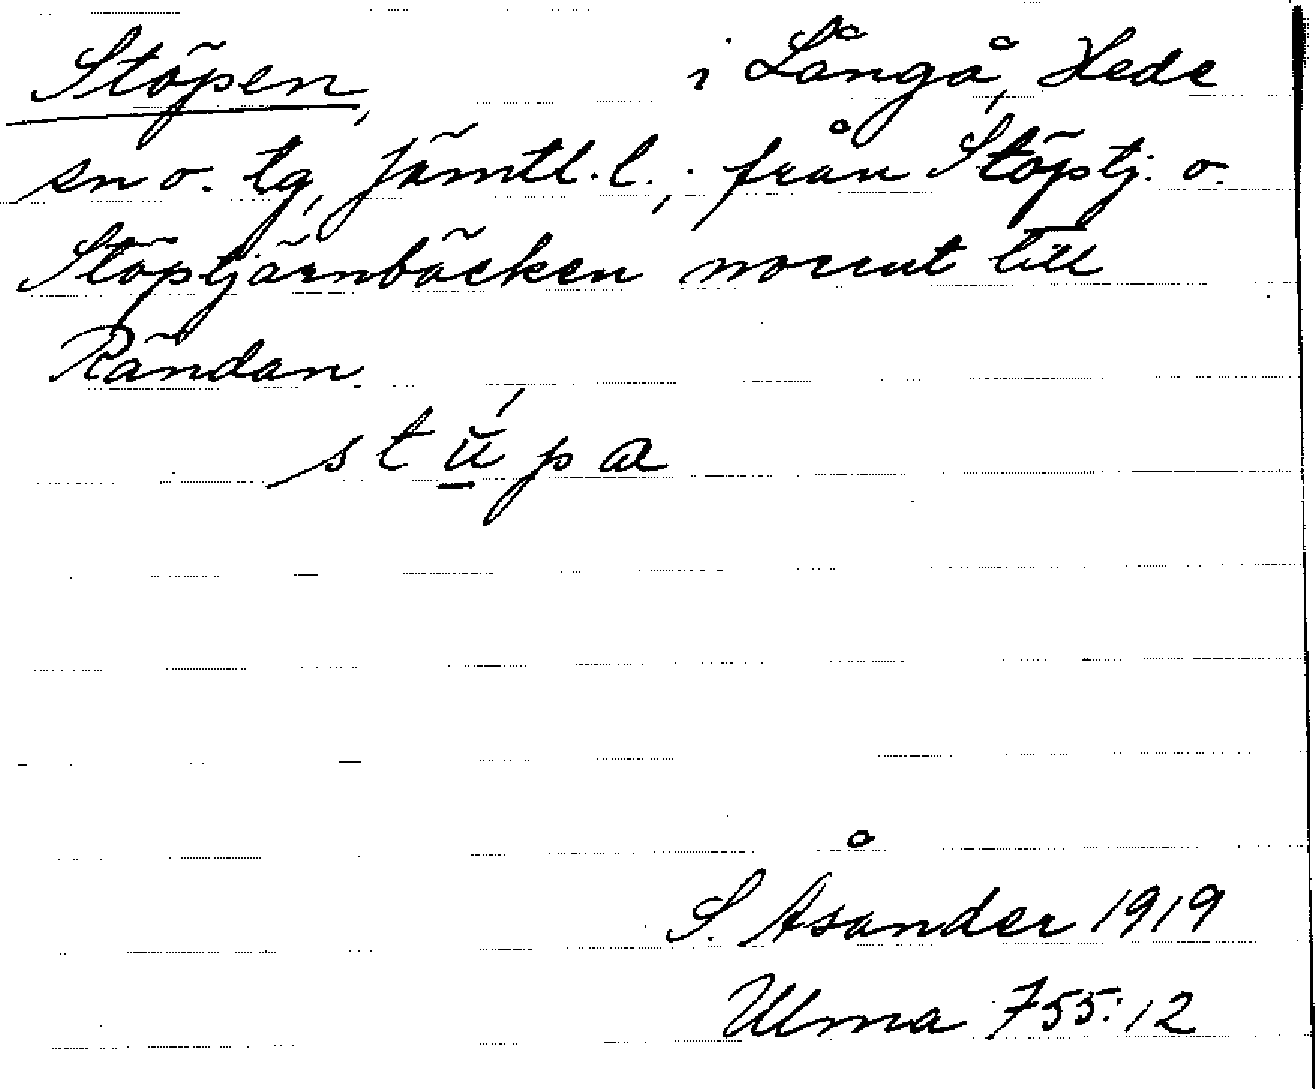 Stöpen, i Långå, Hede
sn o. tg, Jämtl. l.; från Stöptj. o.
Stöptjärnbäcken norrut till
Rändan.
stú̈pa
S. Åsander 1919
Ulma 755:12